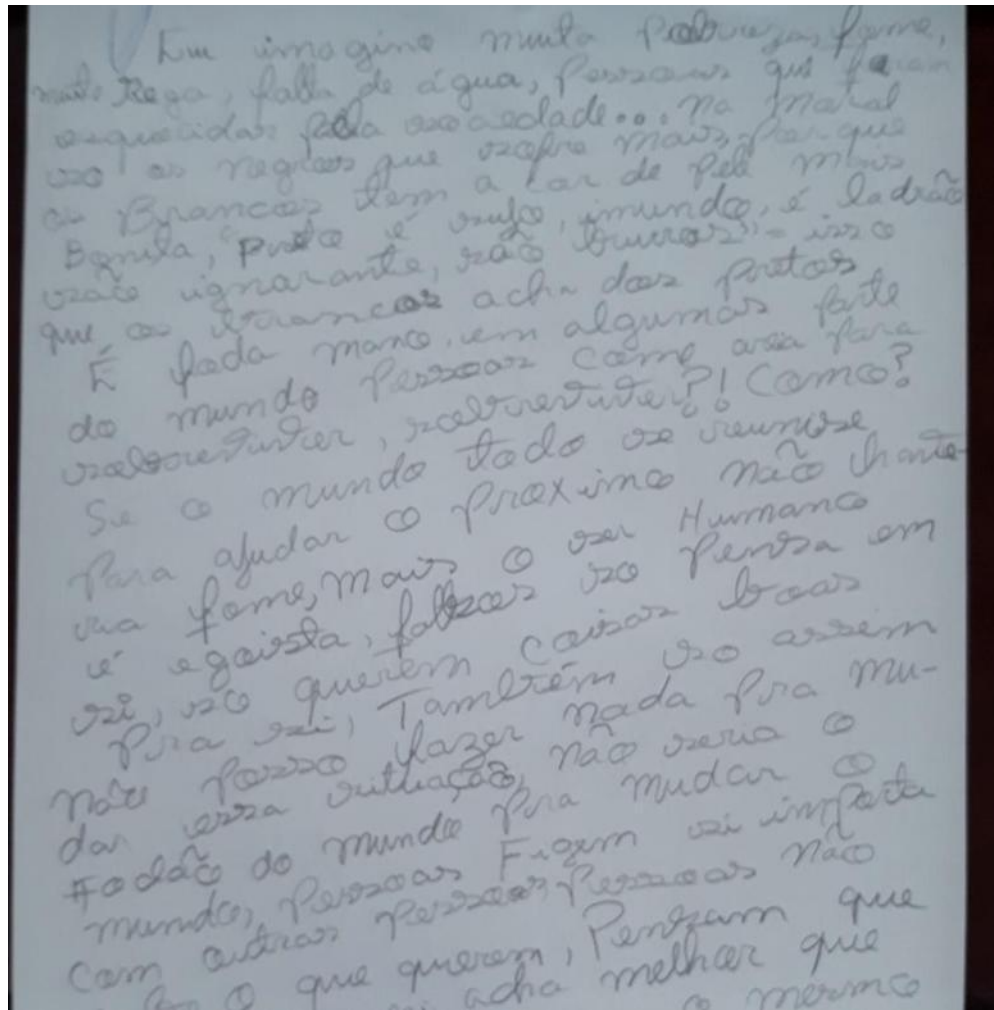 Eu imagino muita Pobreza, fome,
muita Rega, falta de água, Pessoas que foram
esquecidas pela sociedade... na moral
so os negros que sofre mais, Por que
os Brancos tem a cor de Pele mais
Bonita, "Preto é sujo, imundo, é ladrão
são ignorante, são burros" - isso
que os brancos acha dos pretos
É foda mano, em algumas parte
do mundo Pessoas come area Para
sobreviver, sobreviver?! Como?
Se o mundo todo se reunise
Para ajudar o proximo não have-
ria fome, mais o ser Humano
é egoista, falsos so Pensa em
si, so querem coisas boas
Pra si, Também so assim
não Posso fazer nada Pra mu-
dar essa situação, não seria o
Fodão do mundo Pra mudar o
mundo, Pessoas Figem si importa
com outras Pessoas, Pessoas não
o que querem, Pensam que
acha melhor que
o mermo